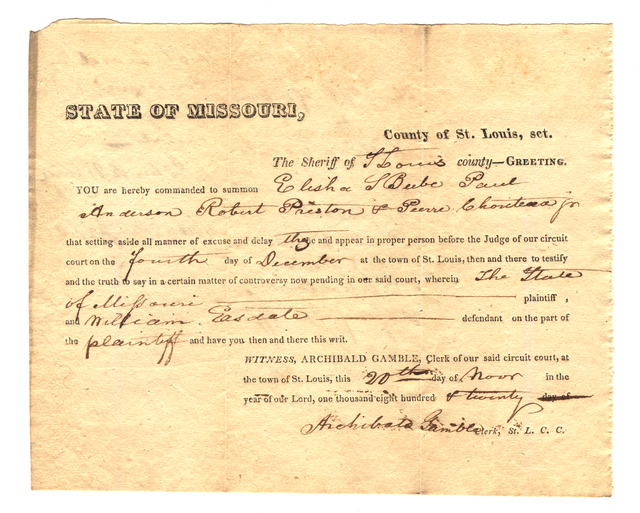 STATE OF MISSOURI,
County of St. Louis, sct.
The Sheriff of St Louis county—GREETING.
YOU are hereby commanded to summon Elisha S Bebe Paul
Anderson Robert Preston & Pierre Chouteau jr
that setting aside all manner of excuse and delay they be and appear in proper person before the Judge of our circuit
court on the fourth day of December at the town of St. Louis, then and there to testify
and the truth to say in a certain matter of controversy now pending in our said court, wherein The State
of Missouri plaintiff,
and William Easdale defendant on the part of
the plaintiff and have you then and there this writ.
WITNESS, ARCHIBALD GAMBLE, Clerk of our said circuit court, at
the town of St. Louis, this 20th day of Novr in the
year of our Lord, one thousand eight hundred & twenty day of
Archibald Gamble Clerk, St. L. C. C.